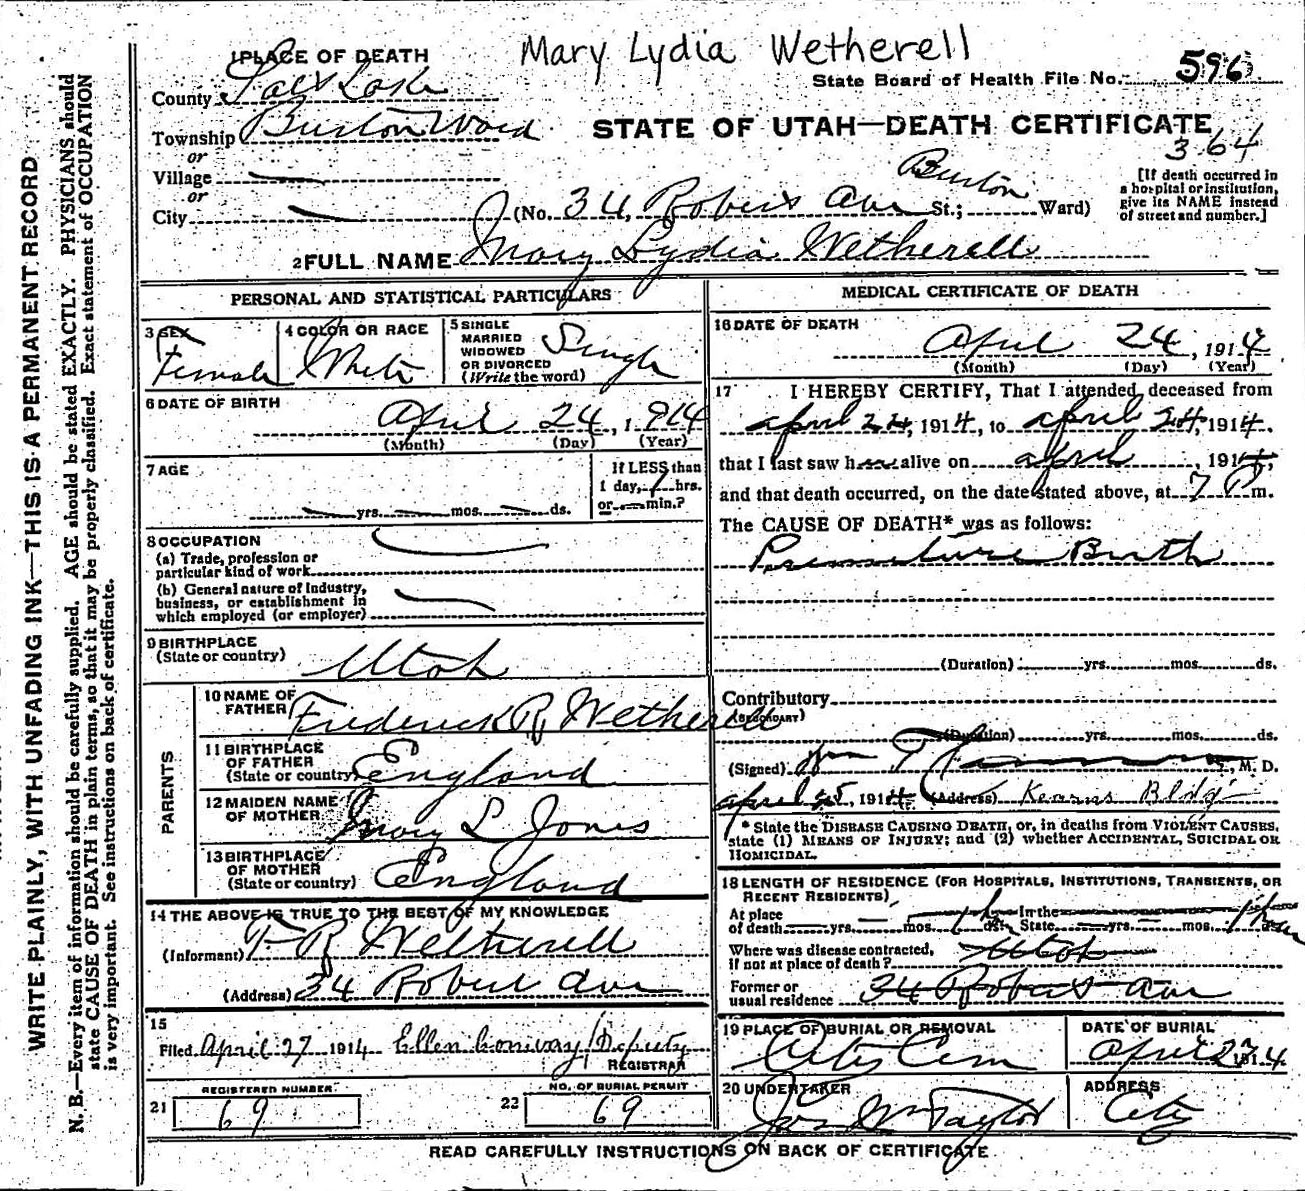 Mary Lydia Wetherell
1 PLACE OF DEATH
State Board of Health File No. 596
County Salt Lake
Township Burton Ward
STATE OF UTAH—DEATH CERTIFICATE
364
or
Village
or
City
(No. 34, Roberts Ave St.; Burton Ward)
[If death occurred in
a hospital or institution,
give its NAME instead
of street and number.]
2 FULL NAME Mary Lydia Wetherell
PERSONAL AND STATISTICAL PARTICULARS
3 SEX
Female
4 COLOR OR RACE
White
5 SINGLE
MARRIED
WIDOWED
OR DIVORCED
(Write the word)
Single
6 DATE OF BIRTH
April 24, 1914
(Month) (Day) (Year)
7 AGE
yrs. mos. ds.
If LESS than
1 day, 7 hrs.
or min.?
8 OCCUPATION
(a) Trade, profession or
particular kind of work
(b) General nature of Industry,
business, or establishment in
which employed (or employer)
9 BIRTHPLACE
(State or country)
Utah
PARENTS
10 NAME OF
FATHER
Frederick R Wetherell
11 BIRTHPLACE
OF FATHER
(State or country)
England
12 MAIDEN NAME
OF MOTHER
Mary L Jones
13 BIRTHPLACE
OF MOTHER
(State or country)
England
14 THE ABOVE IS TRUE TO THE BEST OF MY KNOWLEDGE
(Informant) F R Wetherell
(Address) 34 Robert Ave
15
Filed April 27 1914 Ellen Conway Deputy
REGISTRAR
REGISTERED NUMBER
21 69
NO. OF BURIAL PERMIT
22 69
MEDICAL CERTIFICATE OF DEATH
16 DATE OF DEATH
April 24, 1914
(Month) (Day) (Year)
17 I HEREBY CERTIFY, That I attended deceased from
april 24, 1914, to april 24, 1914.
that I last saw her alive on april, 1914,
and that death occurred, on the date stated above, at 7 P m.
The CAUSE OF DEATH* was as follows:
Premature Birth
(Duration) yrs. mos. ds.
Contributory
(SECONDARY)
(Duration) yrs. mos. ds.
(Signed) M. D.
april 25, 1914 (Address) Kearns Bldg
* State the DISEASE CAUSING DEATH, or, in deaths from VIOLENT CAUSES,
state (1) MEANS OF INJURY; and (2) whether ACCIDENTAL, SUICIDAL OR
HOMICIDAL.
18 LENGTH OF RESIDENCE (FOR HOSPITALS, INSTITUTIONS, TRANSIENTS, OR
RECENT RESIDENTS)
At place
of death yrs. mos. ds. In the State yrs. mos. ds.
Where was disease contracted,
if not at place of death? Utah
Former or
usual residence 34 Roberts ave
19 PLACE OF BURIAL OR REMOVAL
City Cem
DATE OF BURIAL
april 27 1914
20 UNDERTAKER
Jos Wm Taylor
ADDRESS
City
READ CAREFULLY INSTRUCTIONS ON BACK OF CERTIFICATE
WRITE PLAINLY, WITH UNFADING INK—THIS IS A PERMANENT RECORD
N. B.—Every item of information should be carefully supplied. AGE should be stated EXACTLY. PHYSICIANS should
state CAUSE OF DEATH in plain terms, so that it may be properly classified. Exact statement of OCCUPATION
is very important. See instructions on back of certificate.